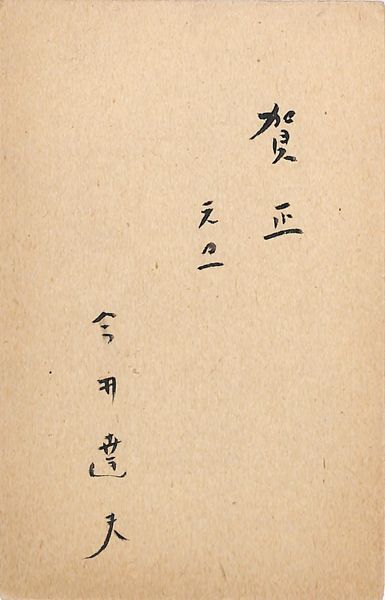 賀正
元旦
今井達夫